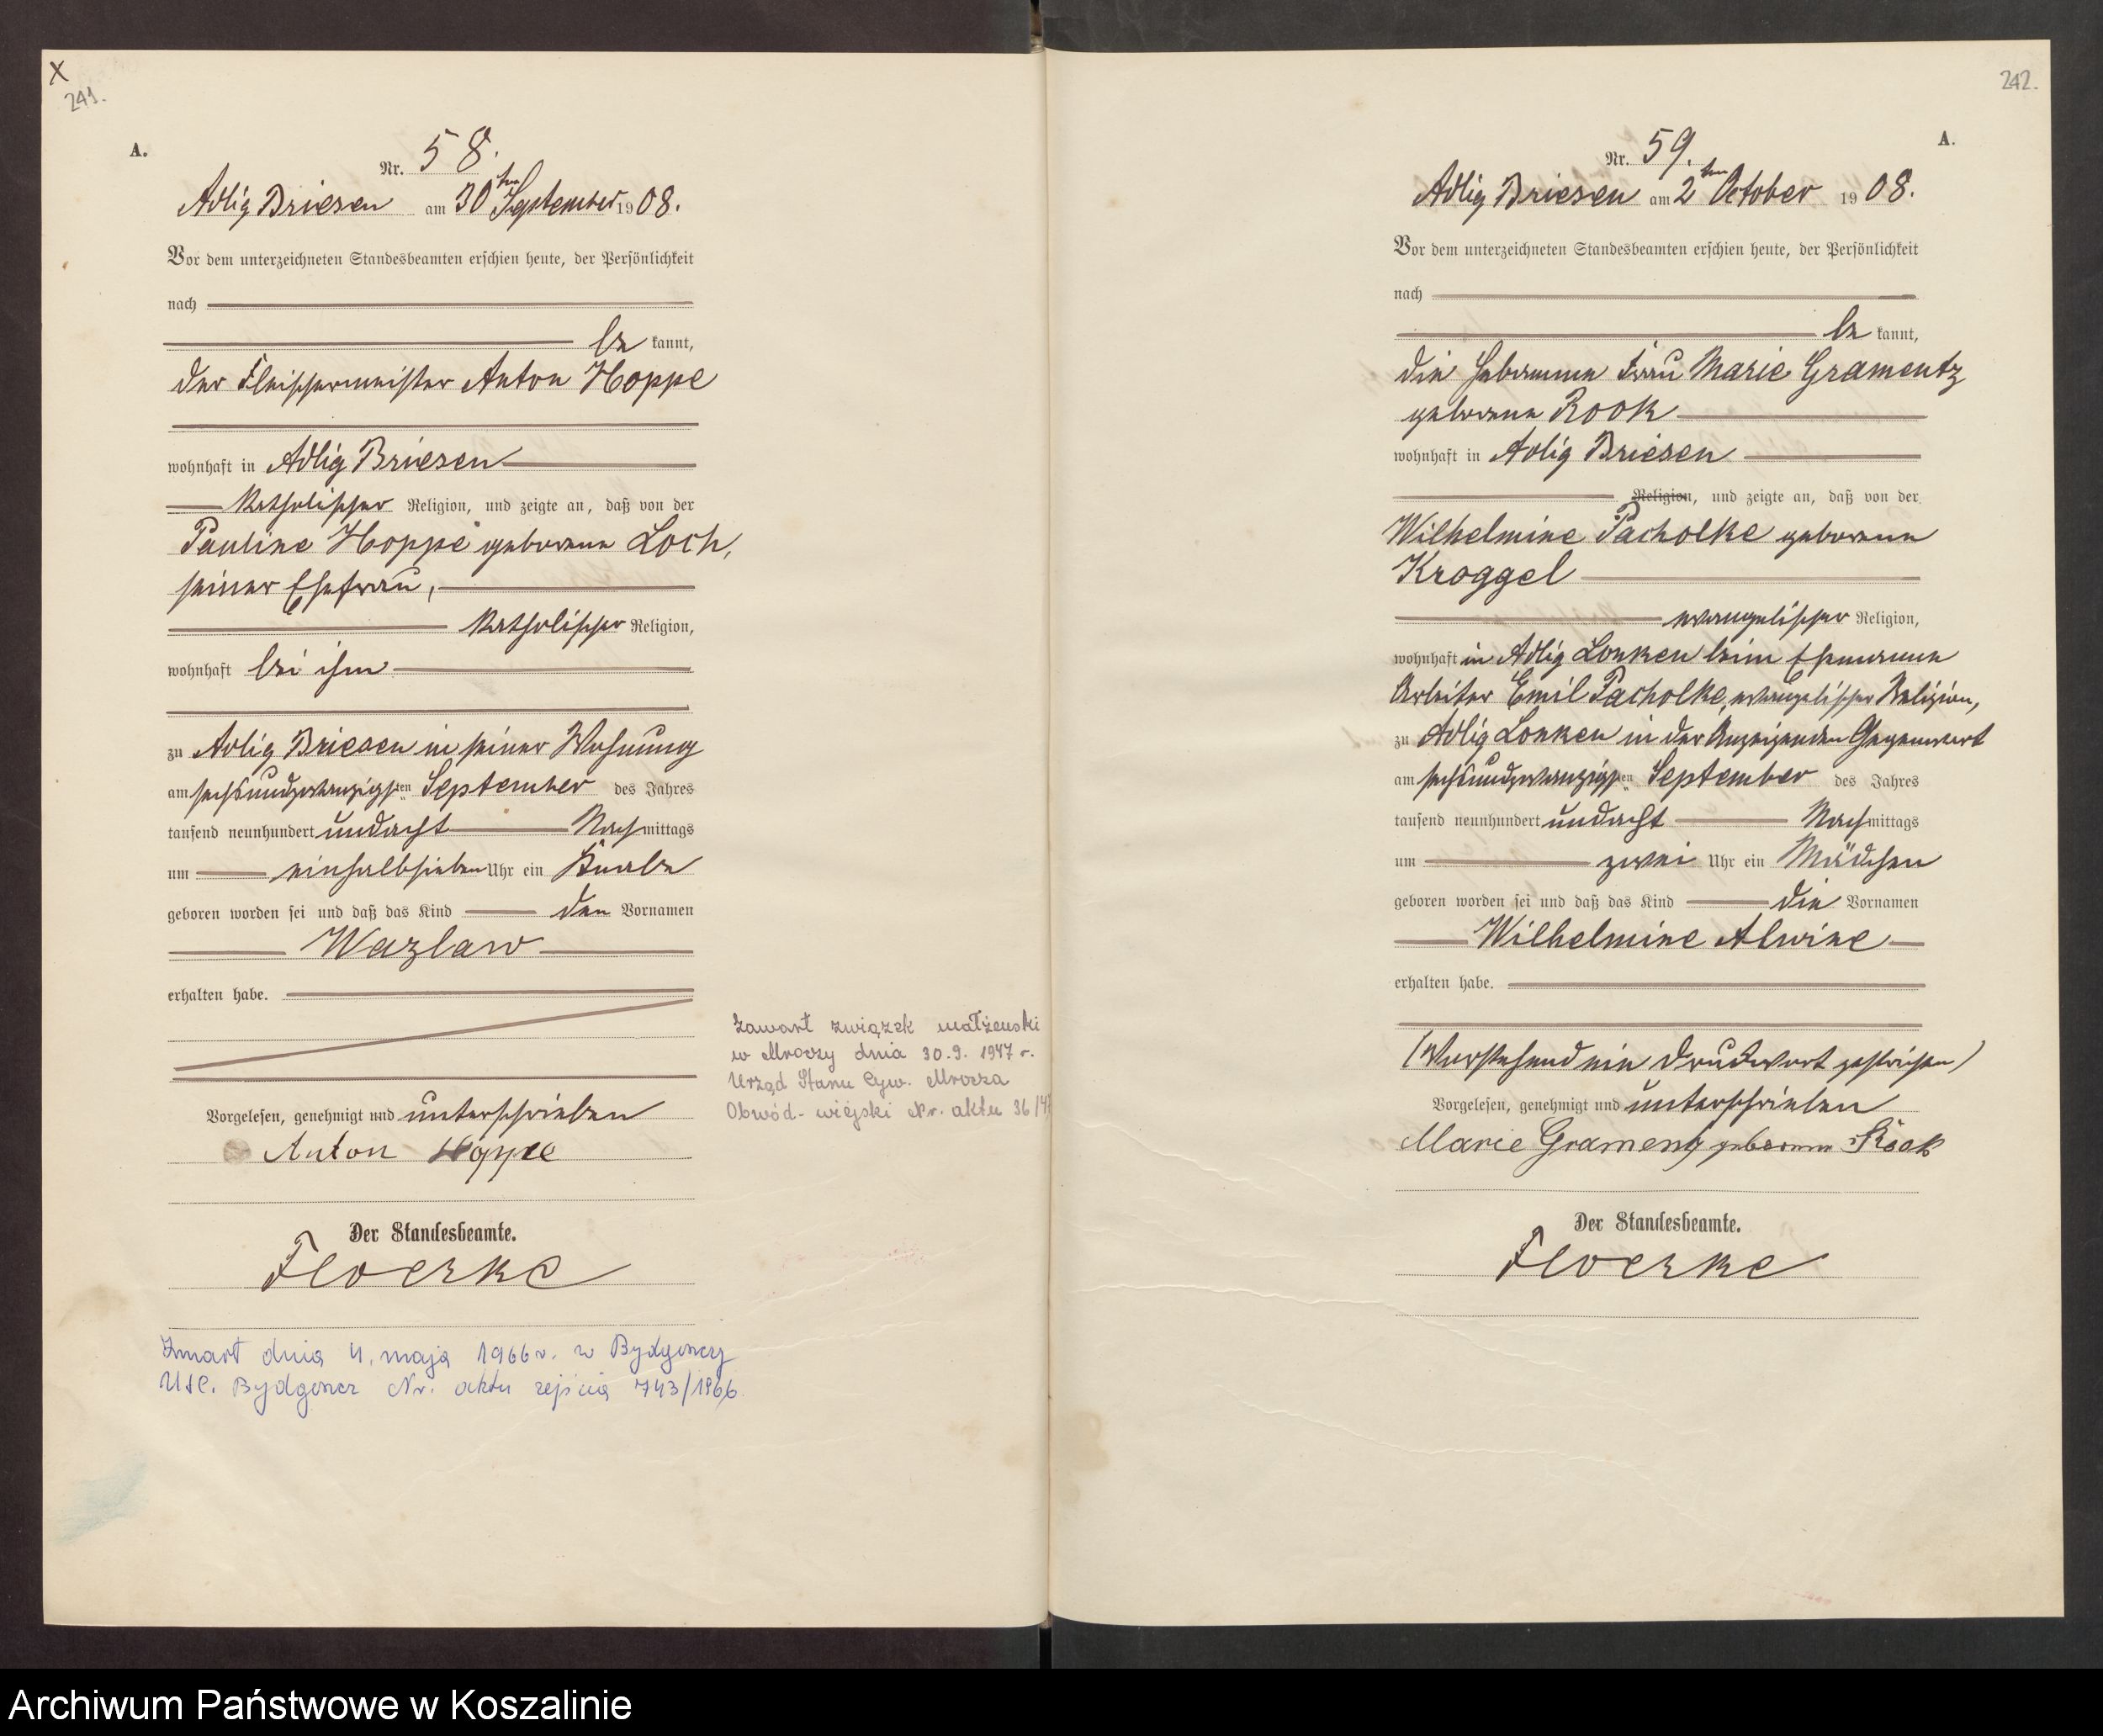 X
241.
A.
Nr. 58.
Adlig Briesen am 30ten September 1908.
Vor dem unterzeichneten Standesbeamten erschien heute, der Persönlichkeit
nach
be kannt,
der Fleischermeister Anton Hoppe
wohnhaft in Adlig Briesen
katholischer Religion, und zeigte an, daß von der
Pauline Hoppe geborene Loch,
seiner Ehefrau,
katholischer Religion,
wohnhaft bei ihm
zu Adlig Briesen in seiner Wohnung
am sechsundzwanzigsten September des Jahres
tausend neunhundert undacht Nachmittags
um einhalbsieben Uhr ein Knabe
geboren worden sei und daß das Kind den Vornamen
Wazlaw
erhalten habe.
Vorgelesen, genehmigt und unterschrieben
Anton Hoppe
Der Standesbeamte.
Floerke
Zmarł dnia 4. maja 1966 r. w Bydgoszczy
USC. Bydgoszcz Nr. aktu zejścia 743/1966
Zawarł związek małżeński
w Mroczy dnia 30.9. 1947 r.
Urząd Stanu Cyw. Mrocza
Obwód - wiejski Nr. aktu 36/47
242.
A.
Nr. 59.
Adlig Briesen am 2ten October 1908.
Vor dem unterzeichneten Standesbeamten erschien heute, der Persönlichkeit
nach
be kannt,
die Hebamme Frau Marie Gramentz
geborene Rook
wohnhaft in Adlig Briesen
Religion, und zeigte an, daß von der
Wilhelmine Pacholke geborene
Kroggel
evangelischer Religion,
wohnhaft in Adlig Lonken beim Ehemanne
Arbeiter Emil Pacholke, evangelischer Religion,
zu Adlig Lonken in der Anzeigenden Gegenwart
am sechsundzwanzigsten September des Jahres
tausend neunhundert undacht Nachmittags
um zwei Uhr ein Mädchen
geboren worden sei und daß das Kind die Vornamen
Wilhelmine Alwine
erhalten habe.
(Vorstehend ein Druckwort gestrichen)
Vorgelesen, genehmigt und unterschrieben
Marie Gramentz geborene Rook
Der Standesbeamte.
Floerke
Archiwum Państwowe w Koszalinie